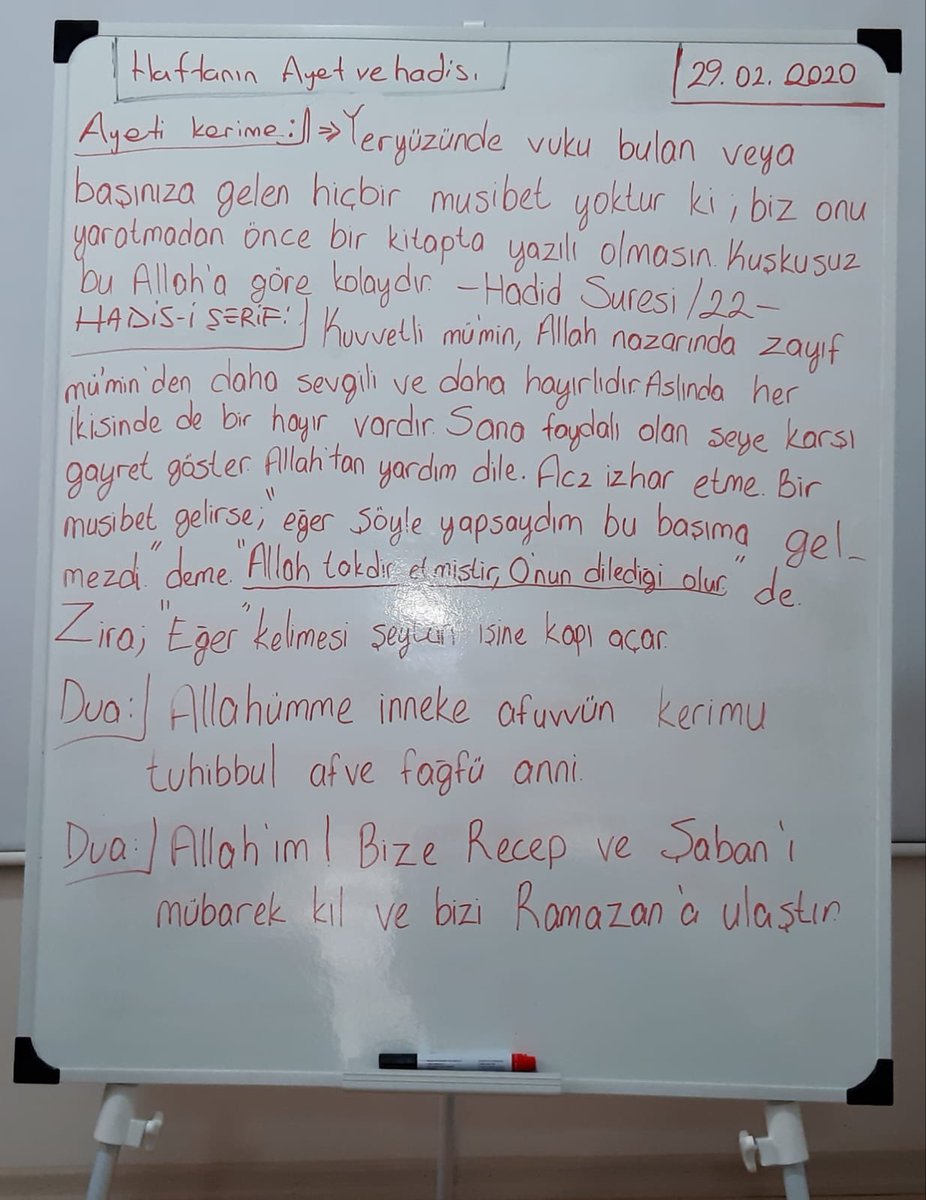 Haftanın Ayet ve hadisi.
29.02.2020
Ayeti kerime: ⇒ Yeryüzünde vuku bulan veya
başınıza gelen hiçbir musibet yoktur ki; biz onu
yaratmadan önce bir kitapta yazılı olmasın. Kuşkusuz
bu Allah'a göre kolaydır. -Hadid Suresi/22-
HADİS-İ ŞERİF: Kuvvetli mü'min, Allah nazarında zayıf
mü'min'den daha sevgili ve daha hayırlıdır. Aslında her
ikisinde de bir hayır vardır. Sana faydalı olan şeye karşı
gayret göster. Allah'tan yardım dile. Acz izhar etme. Bir
musibet gelirse; "eğer şöyle yapsaydım bu başıma gel-
mezdi." deme. "Allah takdir etmiştir, O'nun dilediği olur." de.
Zira; "Eğer" kelimesi şeytan işine kapı açar.
Dua: Allahümme inneke afuvvün kerimu
tuhibbul afve fağfü anni.
Dua: Allah'ım! Bize Recep ve Şaban'ı
mübarek kıl ve bizi Ramazan'a ulaştır.